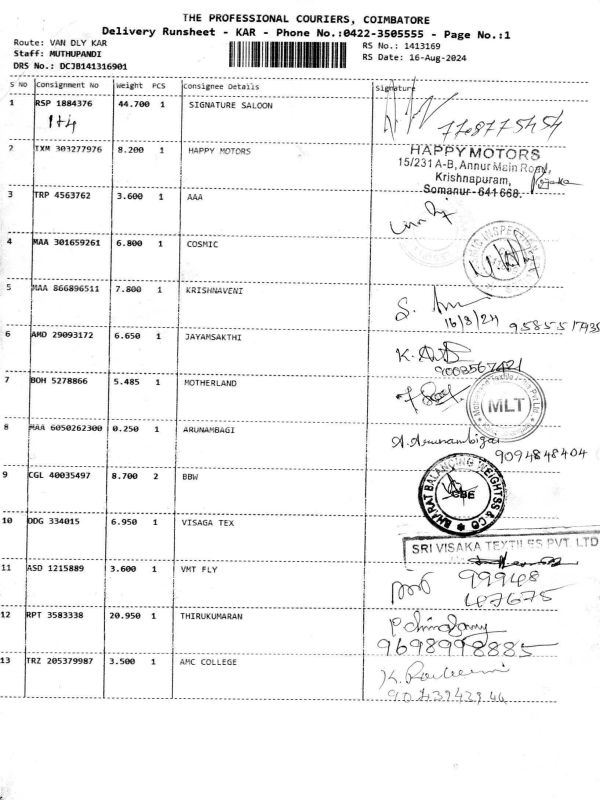 THE PROFESSIONAL COURIERS, COIMBATORE
Delivery Runsheet - KAR - Phone No.:0422-3505555 - Page No.:1
Route: VAN DLY KAR
Staff: MUTHUPANDI
DRS No.: DCJB141316901
RS No.: 1413169
RS Date: 16-Aug-2024
S No Consignment No Weight PCS Consignee Details Signature
1 RSP 1884376 44.700 1 SIGNATURE SALOON
174
7708775454
2 TXM 303277976 8.200 1 HAPPY MOTORS
HAPPY MOTORS
15/231 A-B, Annur Main Road,
Krishnapuram,
Somanur-641 668.
3 TRP 4563762 3.600 1 AAA
4 MAA 301659261 6.800 1 COSMIC
5 MAA 866896511 7.800 1 KRISHNAVENI
16/8/24
6 AMD 29093172 6.650 1 JAYAMSAKTHI
7 BOH 5278866 5.485 1 MOTHERLAND
MLT
8 MAA 6050262300 0.250 1 ARUNAMBAGI
A. Arunambigai
9094848404
9 CGL 40035497 8.700 2 BBW
BHARAT BALANCING WEIGHTSS & CO
CBE
10 DDG 334015 6.950 1 VISAGA TEX
SRI VISAKA TEXTILES PVT. LTD
11 ASD 1215889 3.600 1 VMT FLY
99948
47675
12 RPT 3583338 20.950 1 THIRUKUMARAN
9698998885
13 TRZ 205379987 3.500 1 AMC COLLEGE